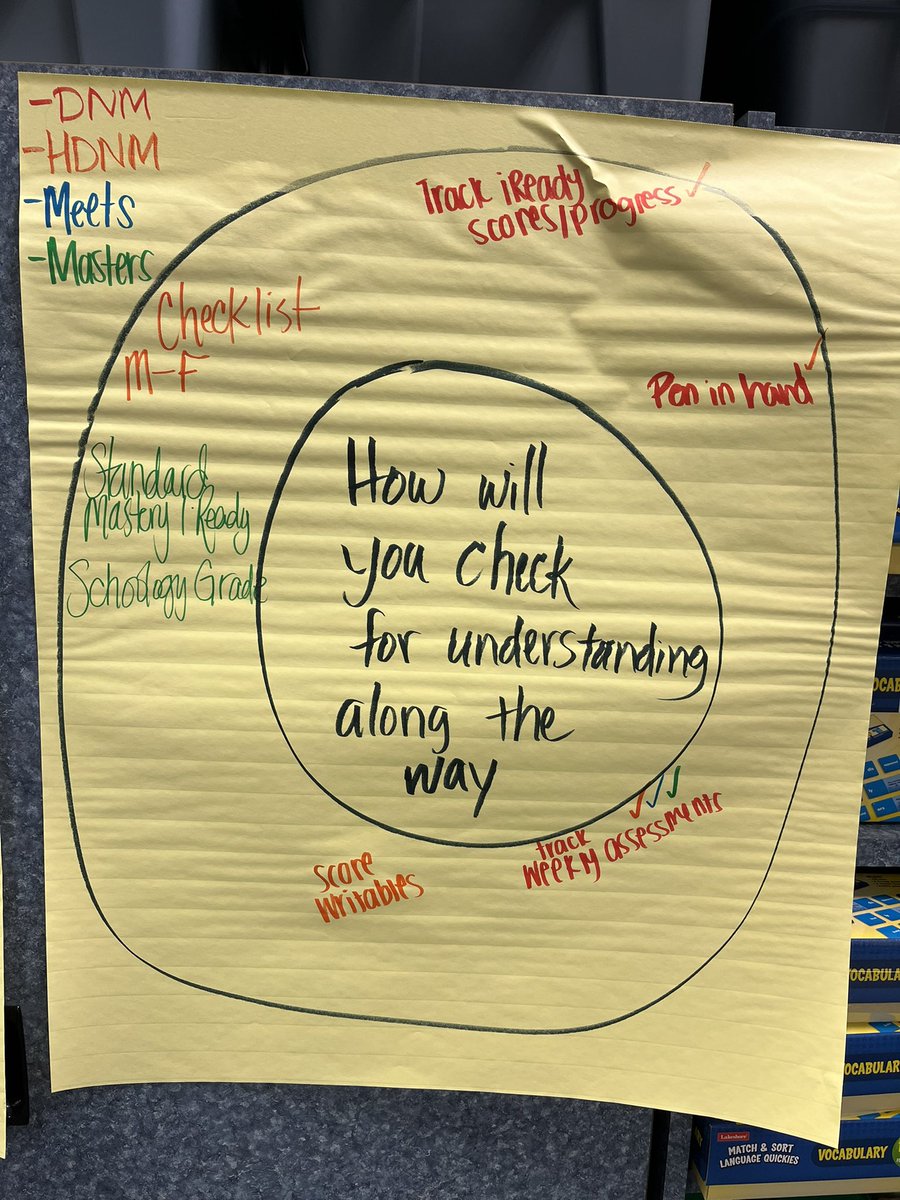 -DNM
-HDNM
-Meets
-Masters
Track iReady
scores/progress ✓
Checklist
M-F
Pen in hand ✓
Standards
Mastery iReady
Schoology Grade
How will
you check
for understanding
along the
way
✓✓✓
track
weekly assessments
score
writables
VOCAB
VOCABULA
VOCABULAR
Lakeshore
MATCH & SORT
LANGUAGE QUICKIES
VOCABULARY